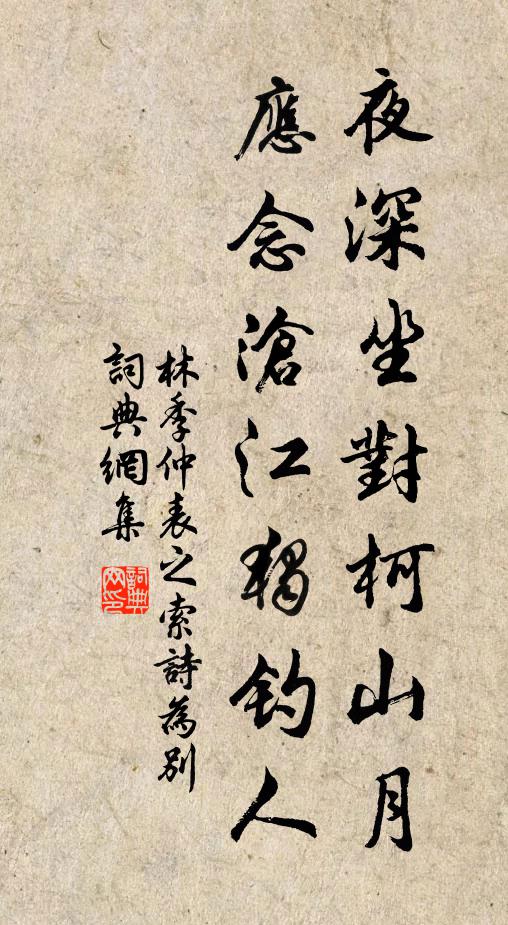 夜深坐對柯山月
應念滄江獨釣人
林季仲表之索詩為別
詞典網集
詞典網印